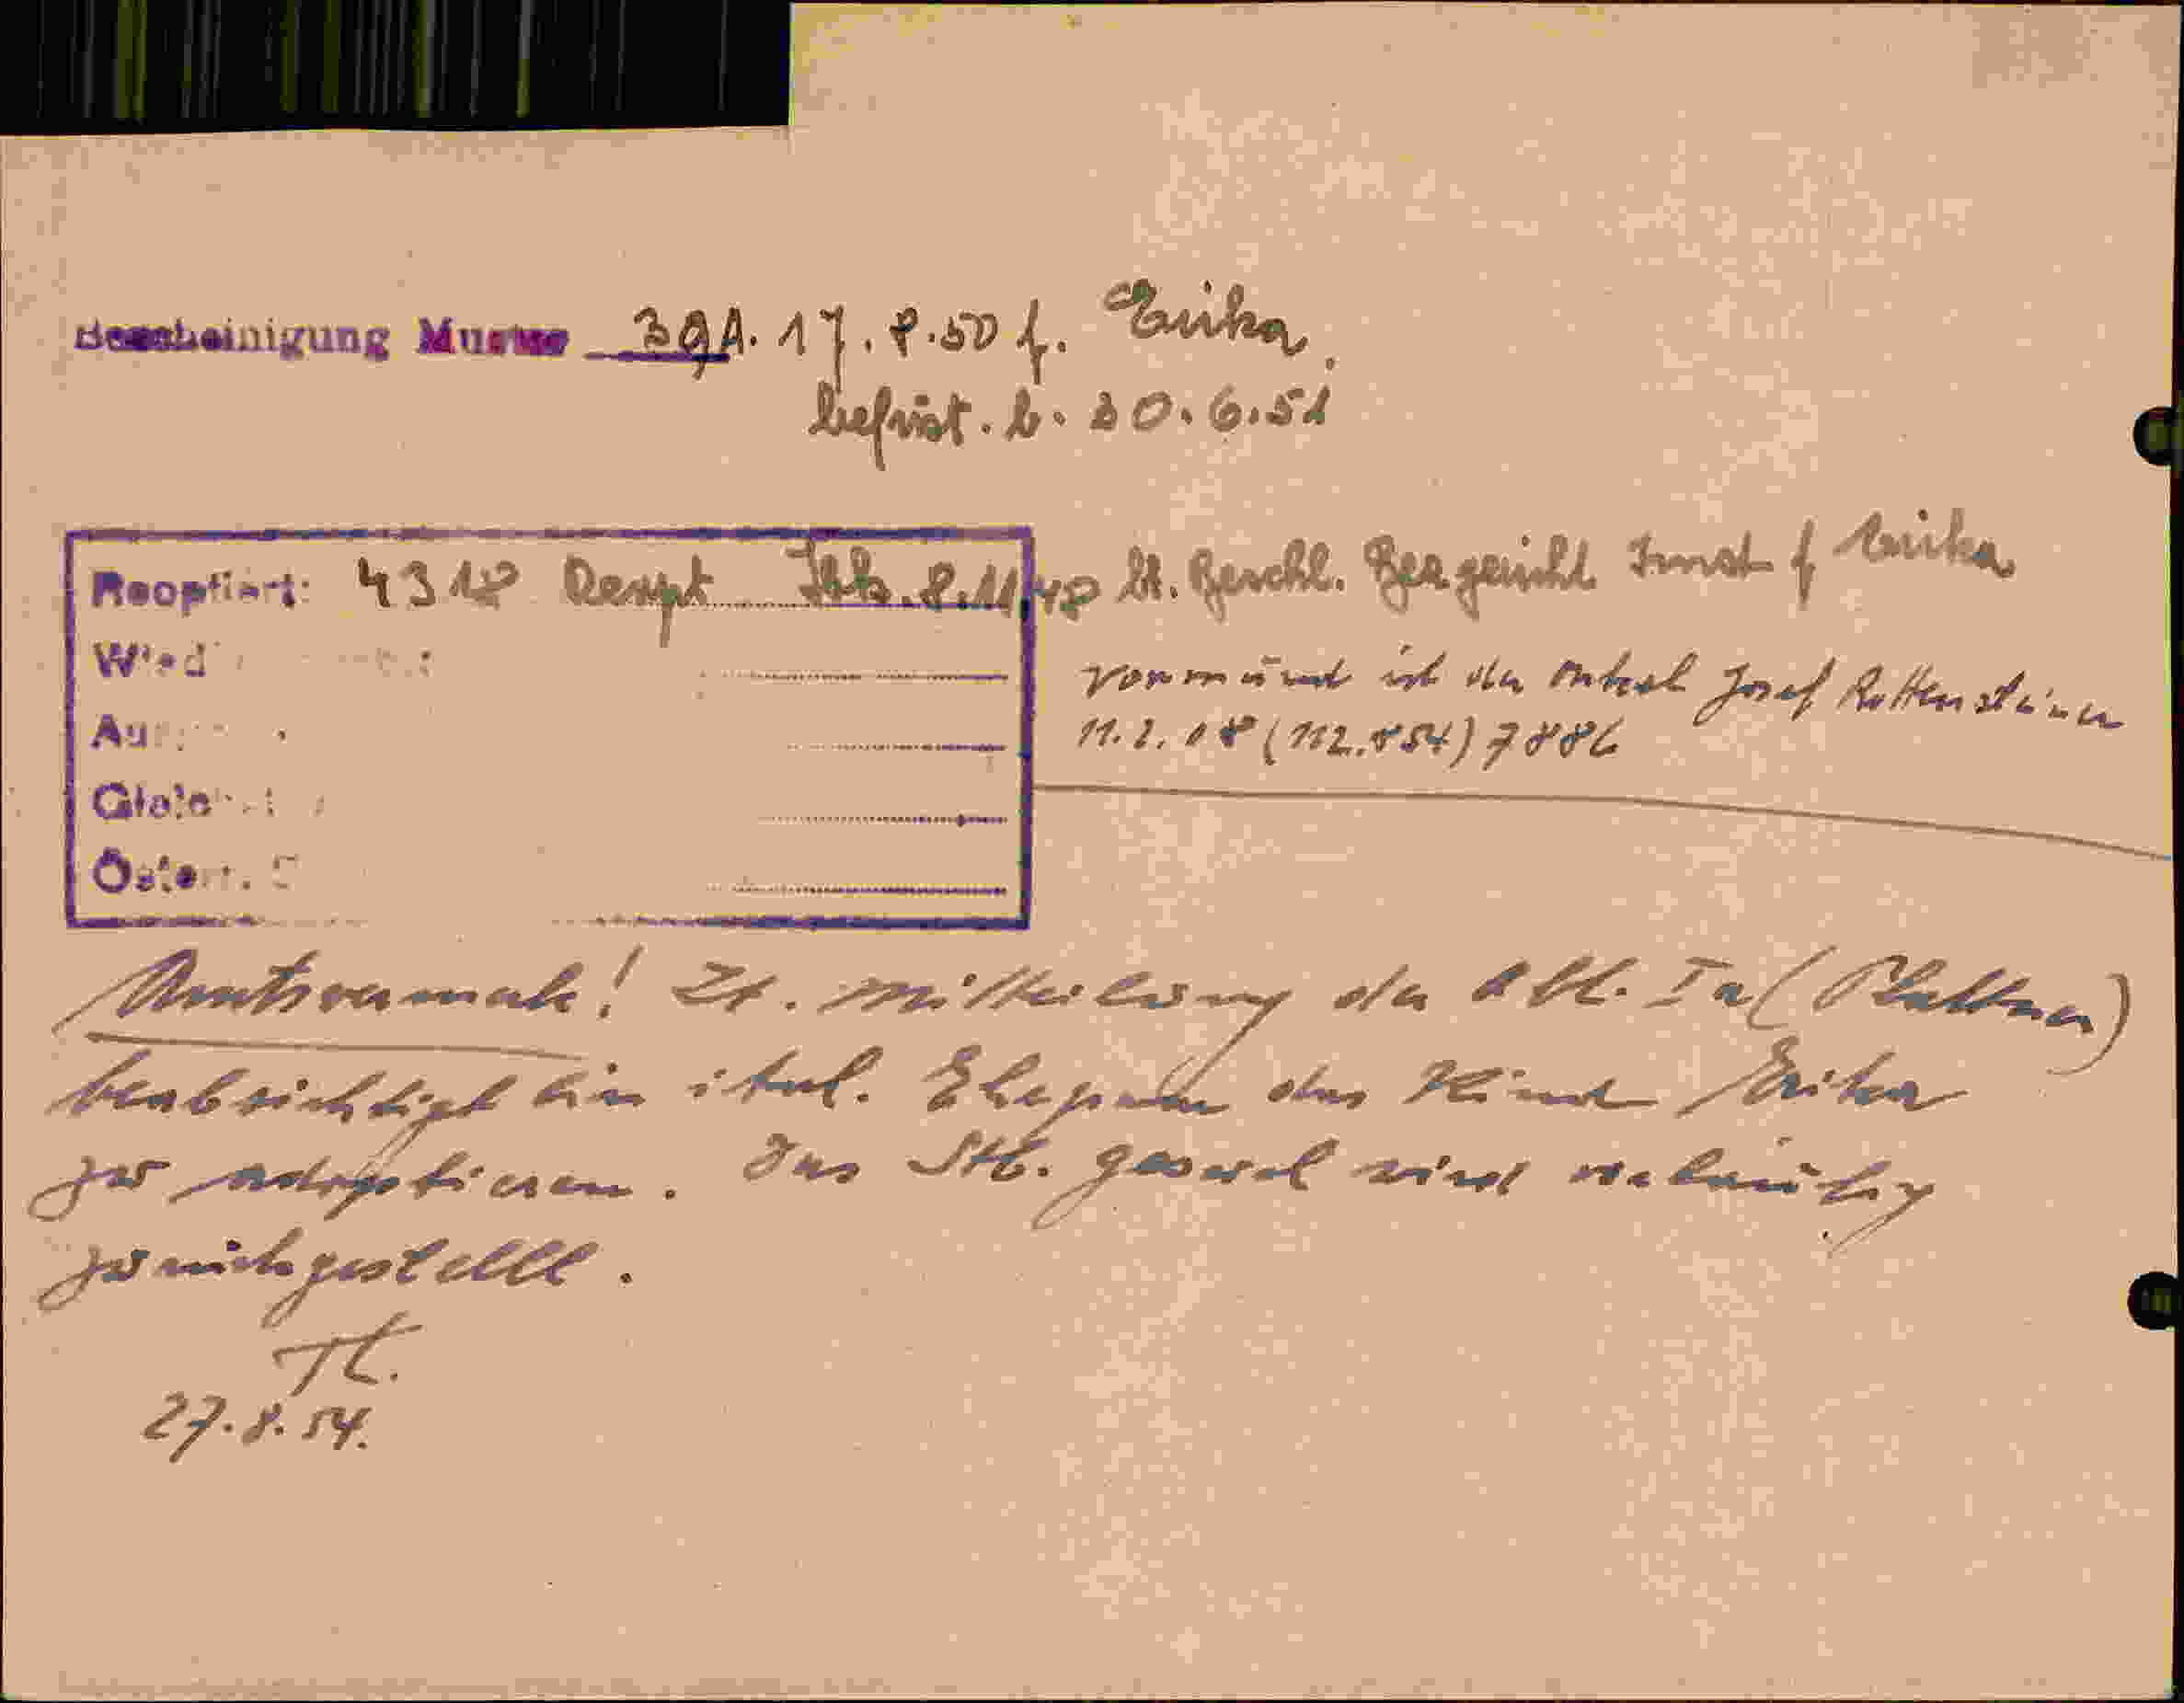 Bescheinigung Muster 39A. 17.8.50 f. Erika
befrist. b. 30.6.51
Reoptiert: 4318 Rempt Ibk. 8.11.48 lt. Beschl. Bezgericht Imst f Erika
Vormund ist der Onkel Josef Rottensteiner
11.2.08 (112.854) 7886
Amtsvermerk! Lt. Mitteilung der Abt. Ia (Plattner)
beabsichtigt ein ital. Ehepaar das Kind Erika
zu adoptieren. Das Stb. gesuch wird vorläufig
zurückgestellt.
27.8.54.